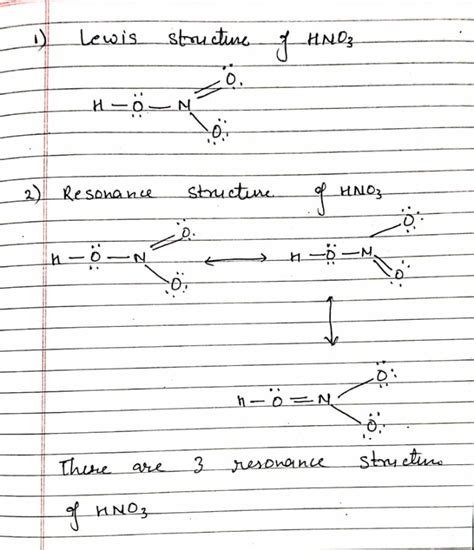 1) Lewis structure of HNO3
O
H – O – N
O
2) Resonance structure of HNO3
O
H – O – N
O
O
H – O – N
O
O
H – O = N
O
There are 3 resonance structure
of HNO3